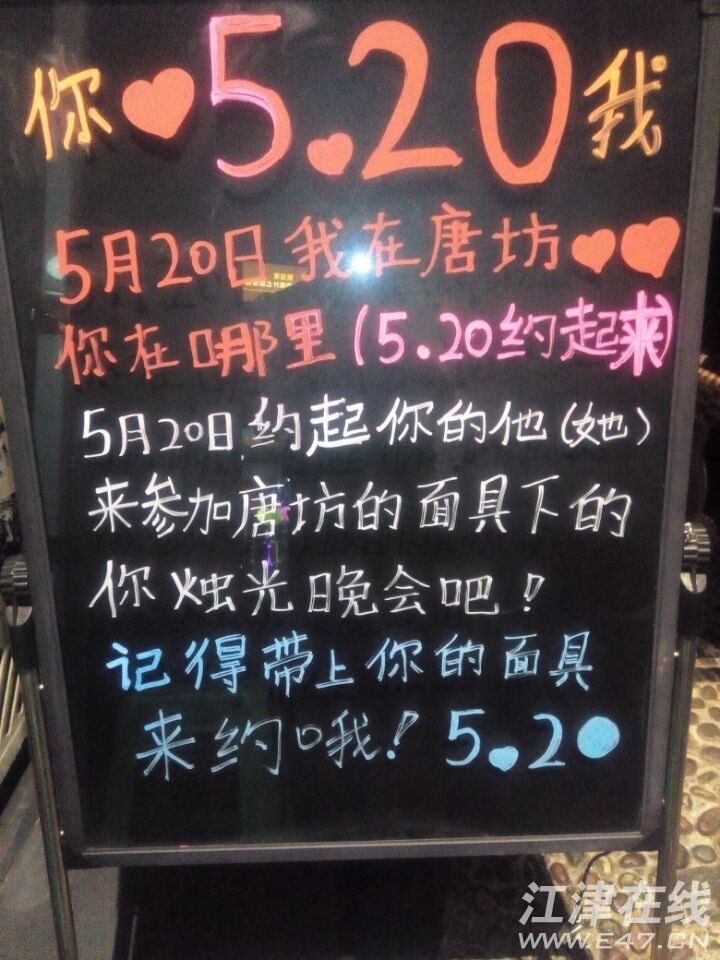 你❤5.20我
5月20日我在唐坊❤❤
你在哪里(5.20约起来)
5月20日约起你的他(她)
来参加唐坊的面具下的
你烛光晚会吧!
记得带上你的面具
来约哦! 5.20
江津在线
WWW.E47.CN